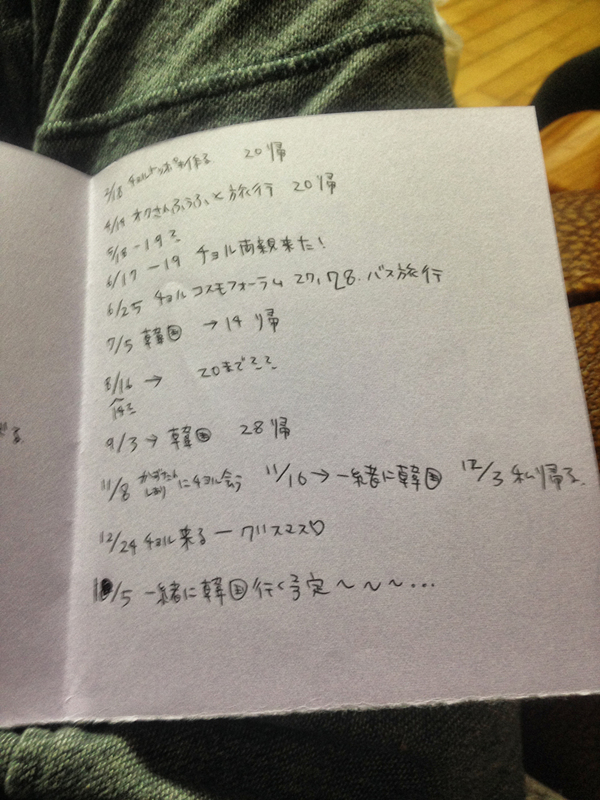 2/18 チョルトッポギ作る 20帰
4/19 オクさんふうふと旅行 20帰
5/18-19?
6/17-19 チョル両親来た!
6/25 チョルコスモフォーラム 27,28.バス旅行
7/5 韓国 →14 帰
8/16 → 20まで??
9/3→韓国 28帰
11/8 にチョル会う 11/16→一緒に韓国 12/3 私帰る.
12/24 チョル来るークリスマス♡
/5 一緒に韓国行く予定〜〜〜...